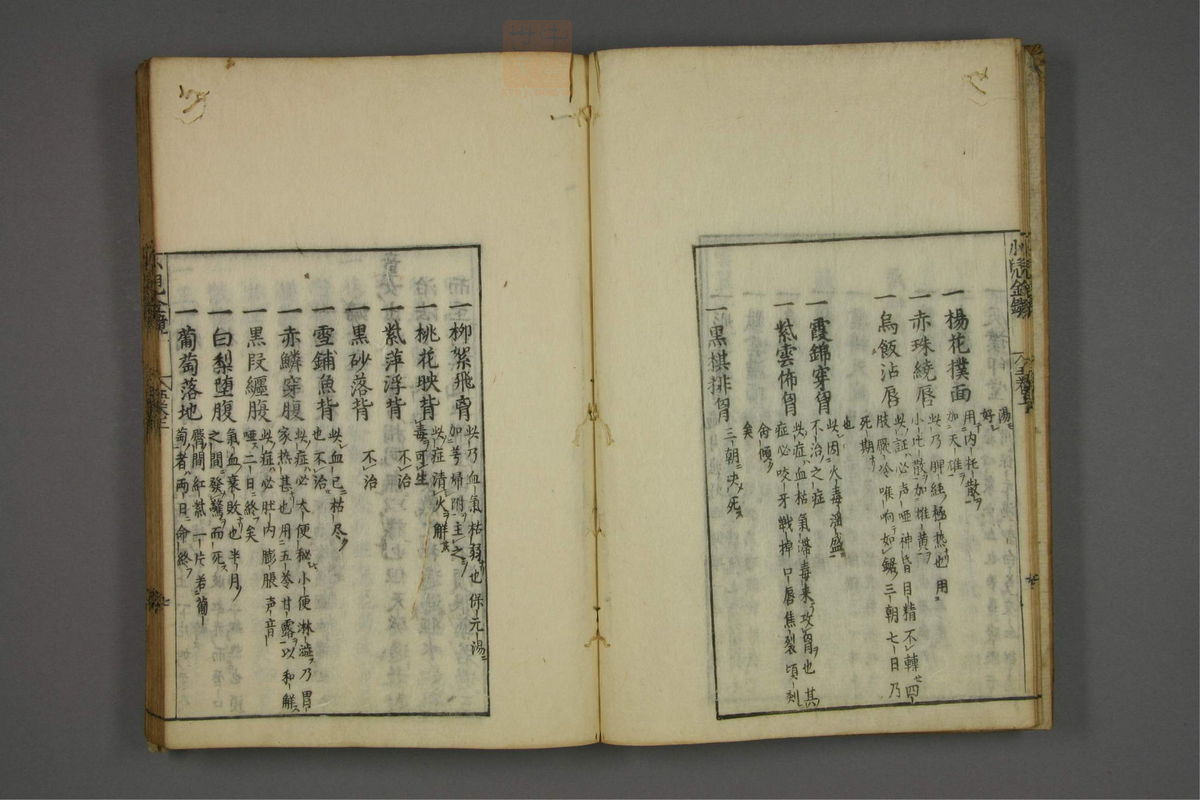 湯ニ好シ
一楊花撲面
用ニ内托散ヲ
加フ天雄ヲ
一赤珠繞唇
此乃脾経極熱也用
小柴散加雄黄ヲ
一烏飯沾唇
此証心声唖神昏目精不轉四
肢厥冷喉响如鋸三朝七日乃
死期
也
一霞錦穿胷
此因火毒溜盛
不治之症
一紫雲佈胷
此症血枯氣滞毒来攻胷也其
症必咬牙戦掉口唇焦裂頃刻
命傾
矣
一黒棋排胷
三朝決死
一柳絮飛膏
此乃血氣枯弱也保元湯ニ
加芎歸附主之
一桃花映背
此症清火解
毒可生
一紫萍浮背
不治
一黒砂落背
不治
一雪鋪魚背
此血已枯尽
也不治
一赤鱗穿腹
此症必大便秘小便淋澁乃胃
家熱甚也用五苓甘露以和解
一黒叚纒腹
此症必肚内膨脹声音
唖二日終矣
一白梨堕腹
氣血棄敗也半月
之間發驚而死
一葡萄落地
臀間紅紫一片若葡
萄者両日命終